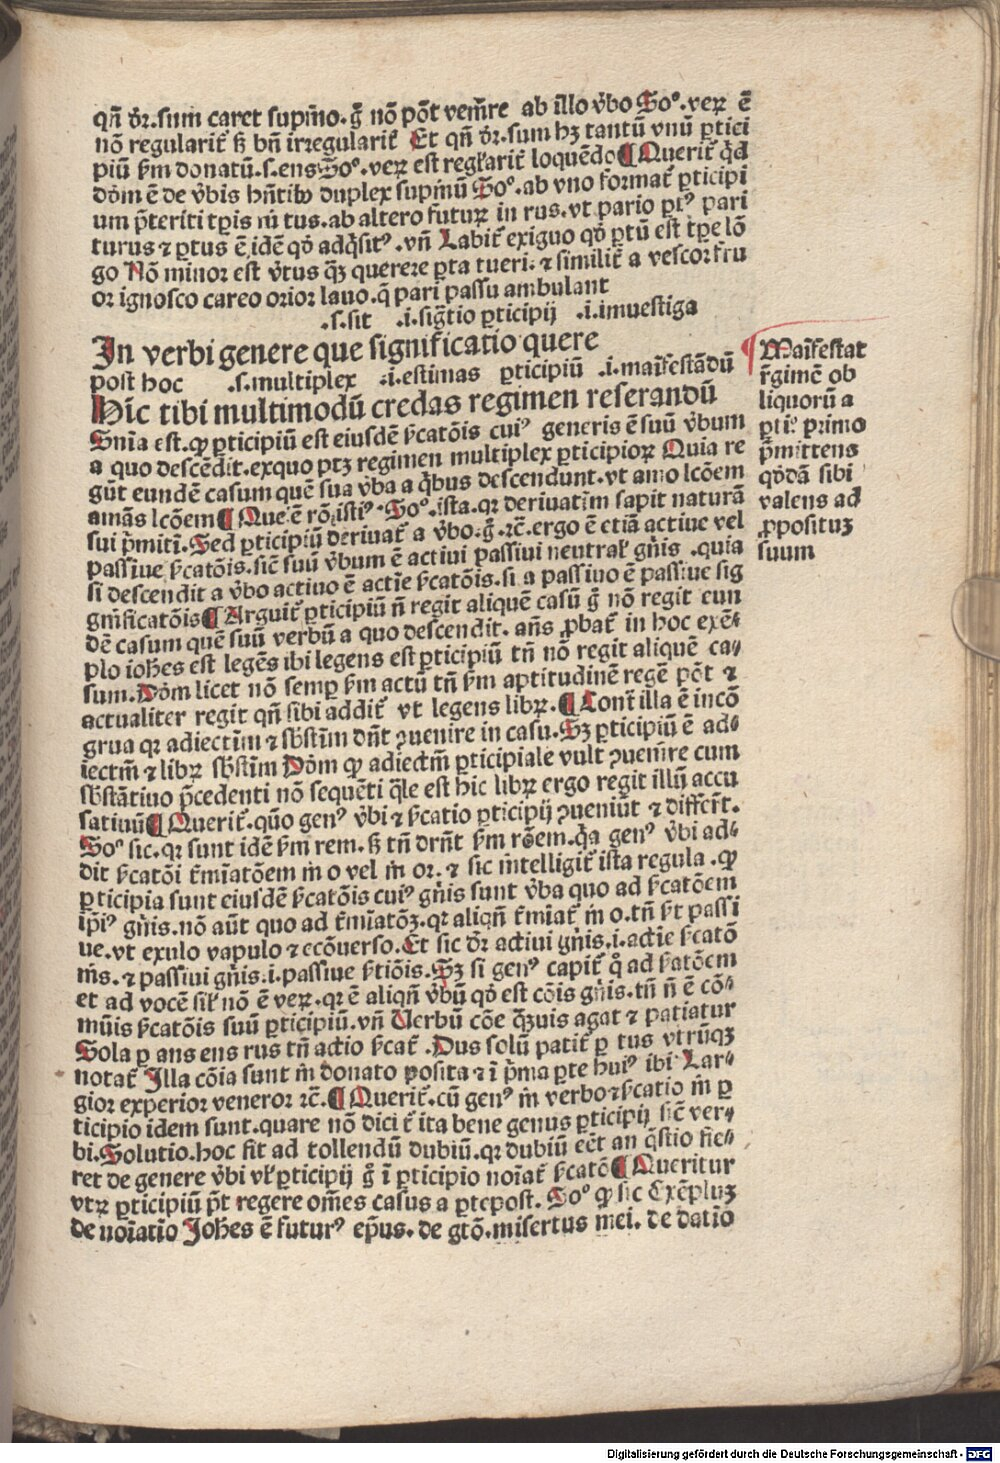 qñ dr̄.sum caret supīno.g̊ nō pōt venīre ab illo v̄bo Soꝰ.veꝝ ē
nō regularit̄ ſꝫ bn̄ irregularit̄ Et qñ dr̄.sum hꝫ tantū vnū ꝑtici
piū ẜm donatū.ſ.ens Soꝰ.veꝝ est regl̄arit̄ loquēdo ¶ Querit̄ qd̄
dōm ē de v̄bis hn̄tibꝰ duplex supīnū Soꝰ.ab vno format̄ ꝑticipi
um p̄teriti tp̄is in tus.ab altero futuꝝ in rus.vt pario ꝑtꝰ pari
turus ⁊ ꝑtus ē idē qd̄ adq̄sitꝰ.vn̄ Labit̄ exiguo qd̄ ꝑtū est tꝑe lō
go Nō minor est v̄tus q̄ꝫ querere ꝑta tueri.⁊ similit̄ a vescor fru
or ignosco careo orior lauo.q̄ pari passu ambulant
.ſ.sit .i.siḡtio ꝑticipij .i.inuestiga
In verbi genere que significatio quere
post hoc .ſ.multiplex .i.estimas ꝑticipiū .i.maīfestādū
Hic tibi multimodū credas regimen reserandū
Sn̄ia est.ꝙ ꝑticipiū est eiusdē ẜcatōis cuiꝰ generis ē suū v̄bum
a quo descēdit.exquo ptꝫ regimen multiplex ꝑticipioꝝ Quia re
gūt eundē casum quē sua v̄ba a q̄bus descendunt.vt amo lcōem
amās lcōem ¶ Que ē rō istiꝰ.Soꝰ.ista.qꝛ deriuatīm sapit naturā
sui p̄miti.Sed ꝑticipiū deriuat̄ a v̄bo.g̊.⁊c.ergo ē etiā actiue vel
passiue ẜcatōis.sic̄ suū v̄bum ē actiui passiui neutral̄ gn̄is.quia
si descendit a v̄bo actiuo ē actīe ẜcatōis.si a passiuo ē passiue sig
gnīficatōis ¶ Arguit̄ ꝑticipiū n̄ regit aliquē casū g̊ nō regit eun
dē casum quē suū verbū a quo descendit.an̄s ꝓbat̄ in hoc exē⸗
plo ioħes est legēs ibi legens est ꝑticipiū tn̄ nō regit aliquē ca⸗
sum.Dōm licet nō semꝑ ẜm actū tn̄ ẜm aptitudinē regē pōt ⁊
actualiter regit qñ sibi addit̄ vt legens libꝝ.¶ Cont̄ illa ē incō
grua qꝛ adiectīm ⁊ sb̄stīm dn̄t ꝯuenire in casu.Sꝫ ꝑticipiū ē ad⸗
iectm̄ ⁊ libꝝ sb̄stīm Dōm ꝙ adiectm̄ ꝑticipiale vult ꝯuenīre cum
sb̄stātiuo p̄cedenti nō sequēti q̄le est hic libꝝ ergo regit illū accu
satiuū ¶ Querit̄.quō genꝰ v̄bi ⁊ ẜcatio ꝑticipij ꝯueniūt ⁊ differt̄.
Soꝰ sic.qꝛ sunt idē ẜm rem.ſꝫ tn̄ drn̄t ẜm rōem.q̄a genꝰ v̄bi ad⸗
dit ẜcatōi t̄miatōem in o vel in or.⁊ sic intelligit̄ ista regula.ꝙ
ꝑticipia sunt eiusdē ẜcatōis cuiꝰ gn̄is sunt v̄ba quo ad ẜcatōem
ip̄iꝰ gn̄is.nō aūt quo ad t̄miatōꝫ.qꝛ aliqñ t̄miat̄ in o.tn̄ ẜt passi
ue.vt exulo vapulo ⁊ ecōuerso.Et sic dr̄ actiui gn̄is.i.actīe ẜcatō
nis.⁊ passiui gn̄is.i.passiue ẜtiōis.Sꝫ si genꝰ capit̄ q̊ ad ẜatōem
et ad vocē sil̄ nō ē veꝝ.qꝛ ē aliqñ v̄bū qd̄ est cōis gn̄is.tn̄ n̄ ē cō⸗
mūis ẜcatōis suū ꝑticipiū.vn̄ Uerbū cōe q̄ꝫuis agat ⁊ patiatur
Sola ꝑ ans ens rus tn̄ actio ẜcat̄.Dus solū patit̄ ꝑ tus vtrūqꝫ
notat̄ Illa cōia sunt in donato posita ⁊ ī p̄ma ꝑte huiꝰ ibi Lar⸗
gior experior veneror ⁊c̄.¶ Querit̄.cū genꝰ in verbo ⁊ ẜcatio in ꝑ
ticipio idem sunt.quare nō dicit̄ ita bene genus ꝑticipij sic̄ ver⸗
bi.Solutio.hoc fit ad tollendū dubiū.qꝛ dubiū eēt an q̄stio fie⸗
ret de genere v̄bi vl̄ ꝑticipij g̊ ī ꝑticipio noīat̄ ẜcatō ¶ Queritur
vtꝝ ꝑticipiū p̄t regere oēs casus a ꝑtepost.Soꝰ ꝙ sic Exēpluꝫ
de noīatio Joħes ē futurꝰ ep̄us.de gtō.misertus mei.de datīo
Maīfestat
r̄gimē ob
liquorū a
ꝑtiꝰ primo
p̄mittens
qd̄dā sibi
valens ad
ꝓpositūꝫ
suum
Digitalisierung gefördert durch die Deutsche Forschungsgemeinschaft - DFG